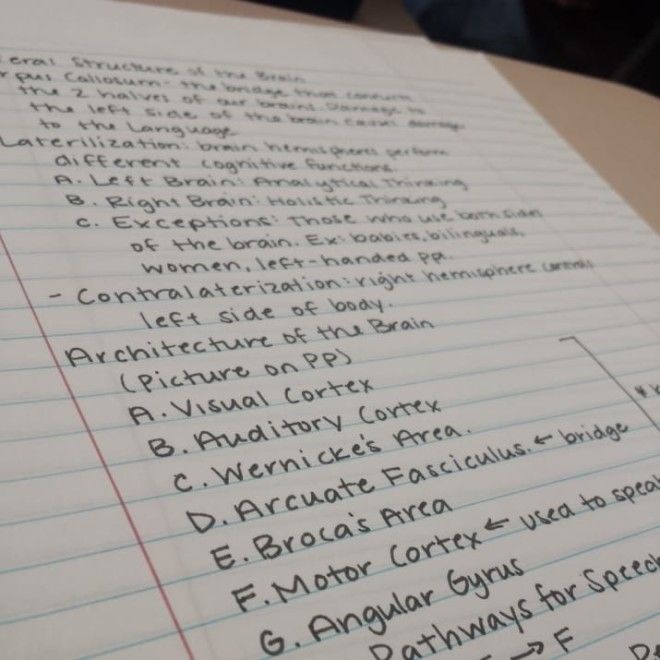 eral Structure of the Brain
rpus Callosum- the bridge that connects
the 2 halves of our brains. Damage to
the left side of the brain causes damage
to the Language
Laterilization: brain hemispheres perform
different cognitive functions.
A. Left Brain: Analytical Thinking
B. Right Brain: Holistic Thinking
C. Exceptions: Those who use both sides
of the brain. Ex: babies, bilinguals,
women, left-handed ppl.
- Contralaterization: right hemisphere controls
left side of body.
Architecture of the Brain
(Picture on PP)
A. Visual Cortex
B. Auditory Cortex
C. Wernicke's Area.
D. Arcuate Fasciculus. ← bridge
E. Broca's Area
F. Motor Cortex ← used to speak
G. Angular Gyrus
Pathways for Speech
→ F